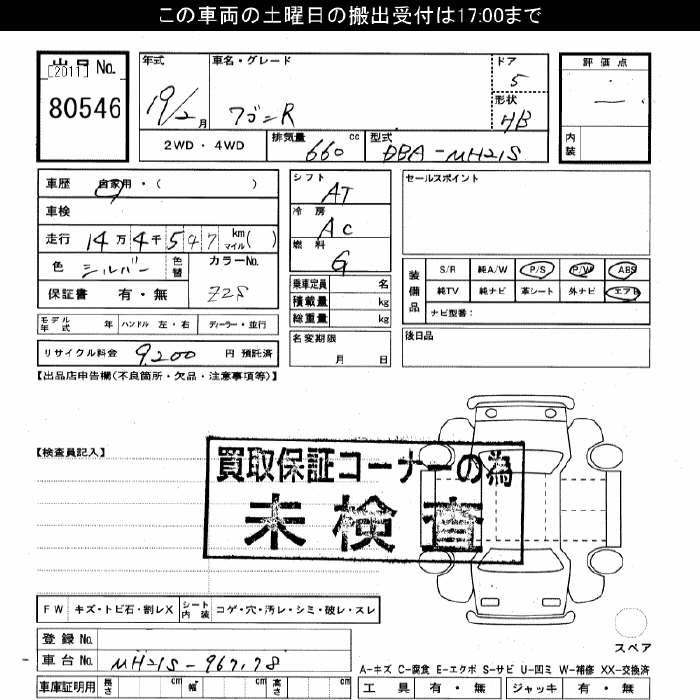 この車両の土曜日の搬出受付は17:00まで
出品 No.
[2011]
80546
年式
19/2 月
車名・グレード
ワゴンR
ドア
5
形状
HB
評価点
内装
2WD ・ 4WD
排気量 660 cc
型式 DBA-MH21S
車歴 自家用 ・ ( )
車検
走行 14万 4千 5 4 7 km マイル ( )
色 シルバー
色替
カラーNo. Z2S
保証書 有 ・ 無
シフト AT
冷房 AC
燃料 G
乗車定員 名
積載量 kg
総重量 kg
名変期限
月 日
セールスポイント
装備品
S/R 純A/W P/S P/W ABS
純TV 純ナビ 革シート 外ナビ エアB
ナビ型番:
後日品
モデル年式 年 ハンドル 左・右 ディーラー・並行
リサイクル料金 9,200 円 預託済
【出品店申告欄(不良箇所・欠品・注意事項等)】
【検査員記入】
買取保証コーナーの為
未検査
FW キズ・トビ石・割レX シート内装 コゲ・穴・汚レ・シミ・破レ・スレ
スペア
登録 No.
車台 No. MH21S-
車庫証明用 長さ cm 幅 cm 高さ cm
A-キズ C-腐食 E-エクボ S-サビ U-凹ミ W-補修 XX-交換済
工具 有 ・ 無 ジャッキ 有 ・ 無